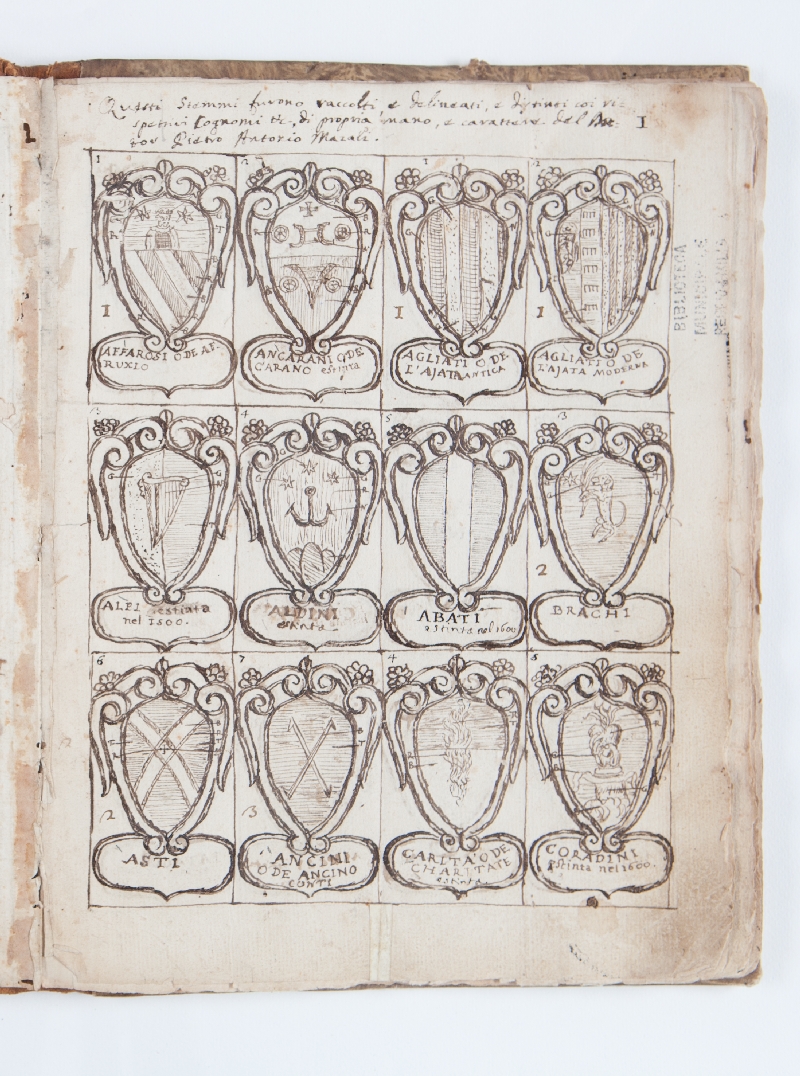 Questi Stemmi furono raccolti e delineati, e distinti coi ris-
spettivi Cognomi di propria mano, e carattere del
Pietro Antonio Macali.
1
1
2
1
2
1
1
1
1
AFFAROSI O DE AF.
RUXIO
ANCARANI O DE
CARANO estinta
AGLIATI O DE
L'AJATA ANTICA
AGLIATI O DE
L'AJATA MODERNA
3
4
5
3
2
ALEI estinta
nel 1500.
ALDINI
estinta
ABATI
estinta nel 1600
BRACHI
6
7
4
5
2
3
ASTI
ANCINI
O DE ANCINO
CONTI
CARITA O DE
CHARITATE
estinta
CORADINI
estinta nel 1600.
BIBLIOTECA
MUNICIPALE